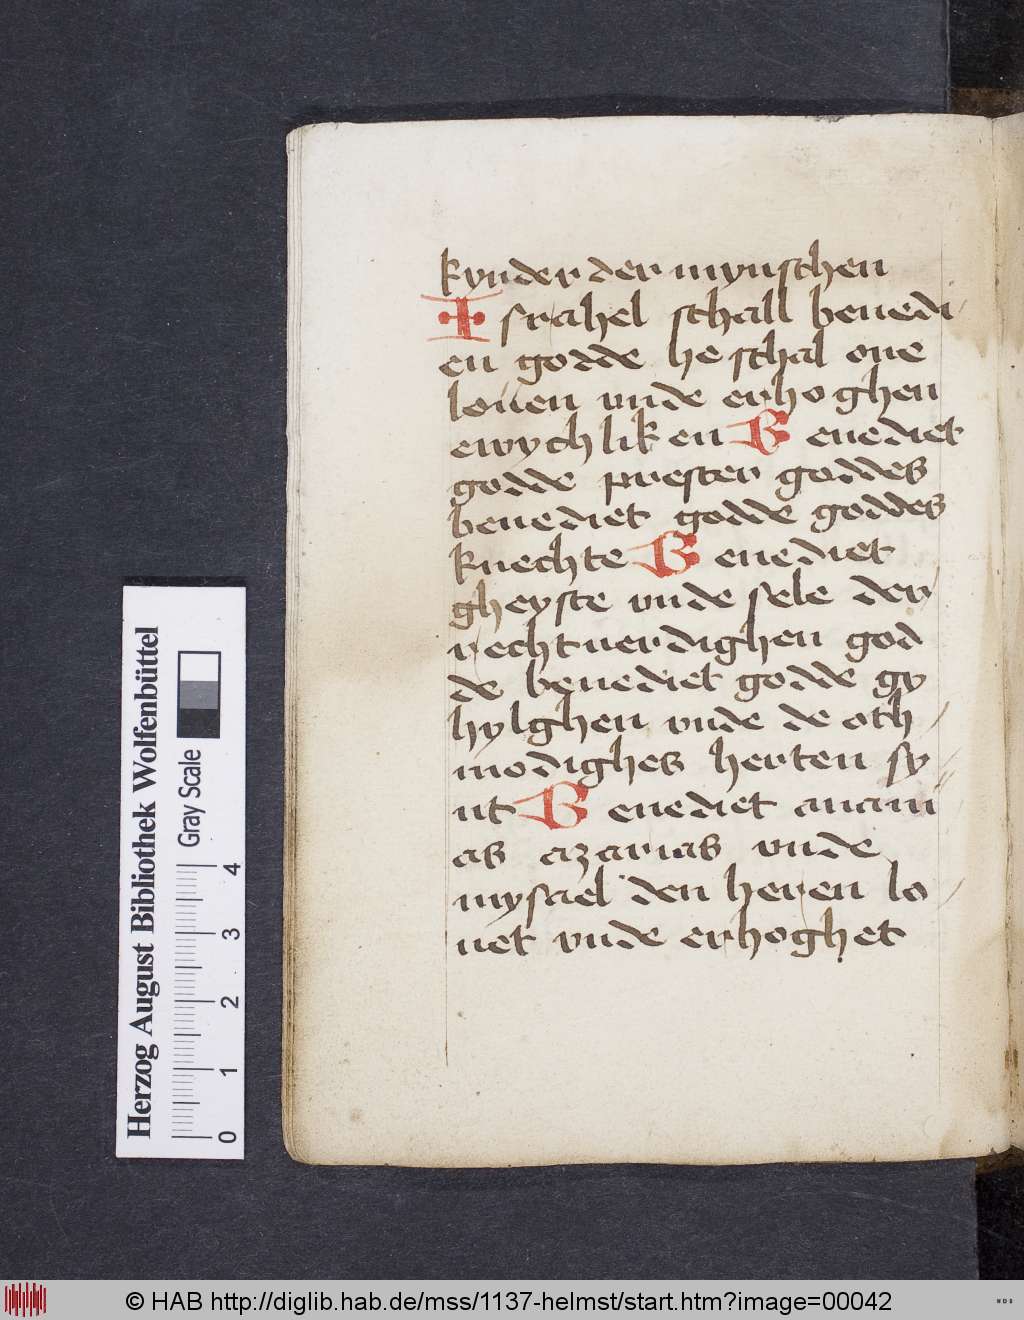 kynder der mynschen
Israhel schall benedi
en godde he schal one
louen vnde erhoghen
ewychliken Benediet
godde prester goddes
benediet godde goddes
knechte Benediet
gheyste vnde sele der
rechtuerdighen god
de benediet godde gy
hylghen vnde de oth
modighes herten sy
nt Benediet anani
as azarias vnde
mysael den heren lo
uet vnde erhoghet
Herzog August Bibliothek Wolfenbüttel
Gray Scale
0 1 2 3 4
© HAB http://diglib.hab.de/mss/1137-helmst/start.htm?image=00042